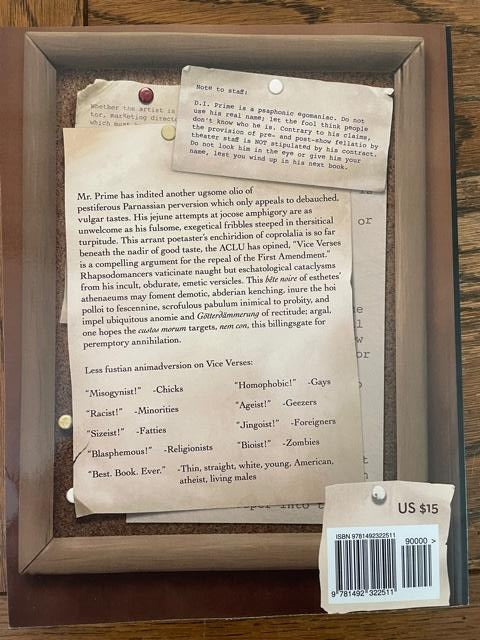 Note to staff:
D.I. Prime is a psaphonic egomaniac. Do not
use his real name; let the fool think people
don't know who he is. Contrary to his claims,
the provision of pre- and post-show fellatio by
theater staff is NOT stipulated by his contract.
Do not look him in the eye or give him your
name, lest you wind up in his next book.
Whether the artist is
tor, marketing direct
which must
Mr. Prime has indited another ugsome olio of
pestiferous Parnassian perversion which only appeals to debauched,
vulgar tastes. His jejune attempts at jocose amphigory are as
unwelcome as his fulsome, exegetical fribbles steeped in thersitical
turpitude. This arrant poetaster's enchiridion of coprolalia is so far
beneath the nadir of good taste, the ACLU has opined, "Vice Verses
is a compelling argument for the repeal of the First Amendment."
Rhapsodomancers vaticinate naught but eschatological cataclysms
from his incult, obdurate, emetic versicles. This bête noire of esthetes'
athenaeums may foment demotic, abderian kenching, inure the hoi
polloi to fescennine, scrofulous pabulum inimical to probity, and
impel ubiquitous anomie and Götterdämmerung of rectitude; argal,
one hopes the custos morum targets, nem con, this billingsgate for
peremptory annihilation.
Less fustian animadversion on Vice Verses:
"Misogynist!" -Chicks
"Homophobic!" -Gays
"Racist!" -Minorities
"Ageist!" -Geezers
"Sizeist!" -Fatties
"Jingoist!" -Foreigners
"Blasphemous!" -Religionists
"Bioist!" -Zombies
"Best. Book. Ever." -Thin, straight, white, young, American,
atheist, living males
or
w
or
into
US $15
ISBN 9781492322511
90000 >
9 781492 322511